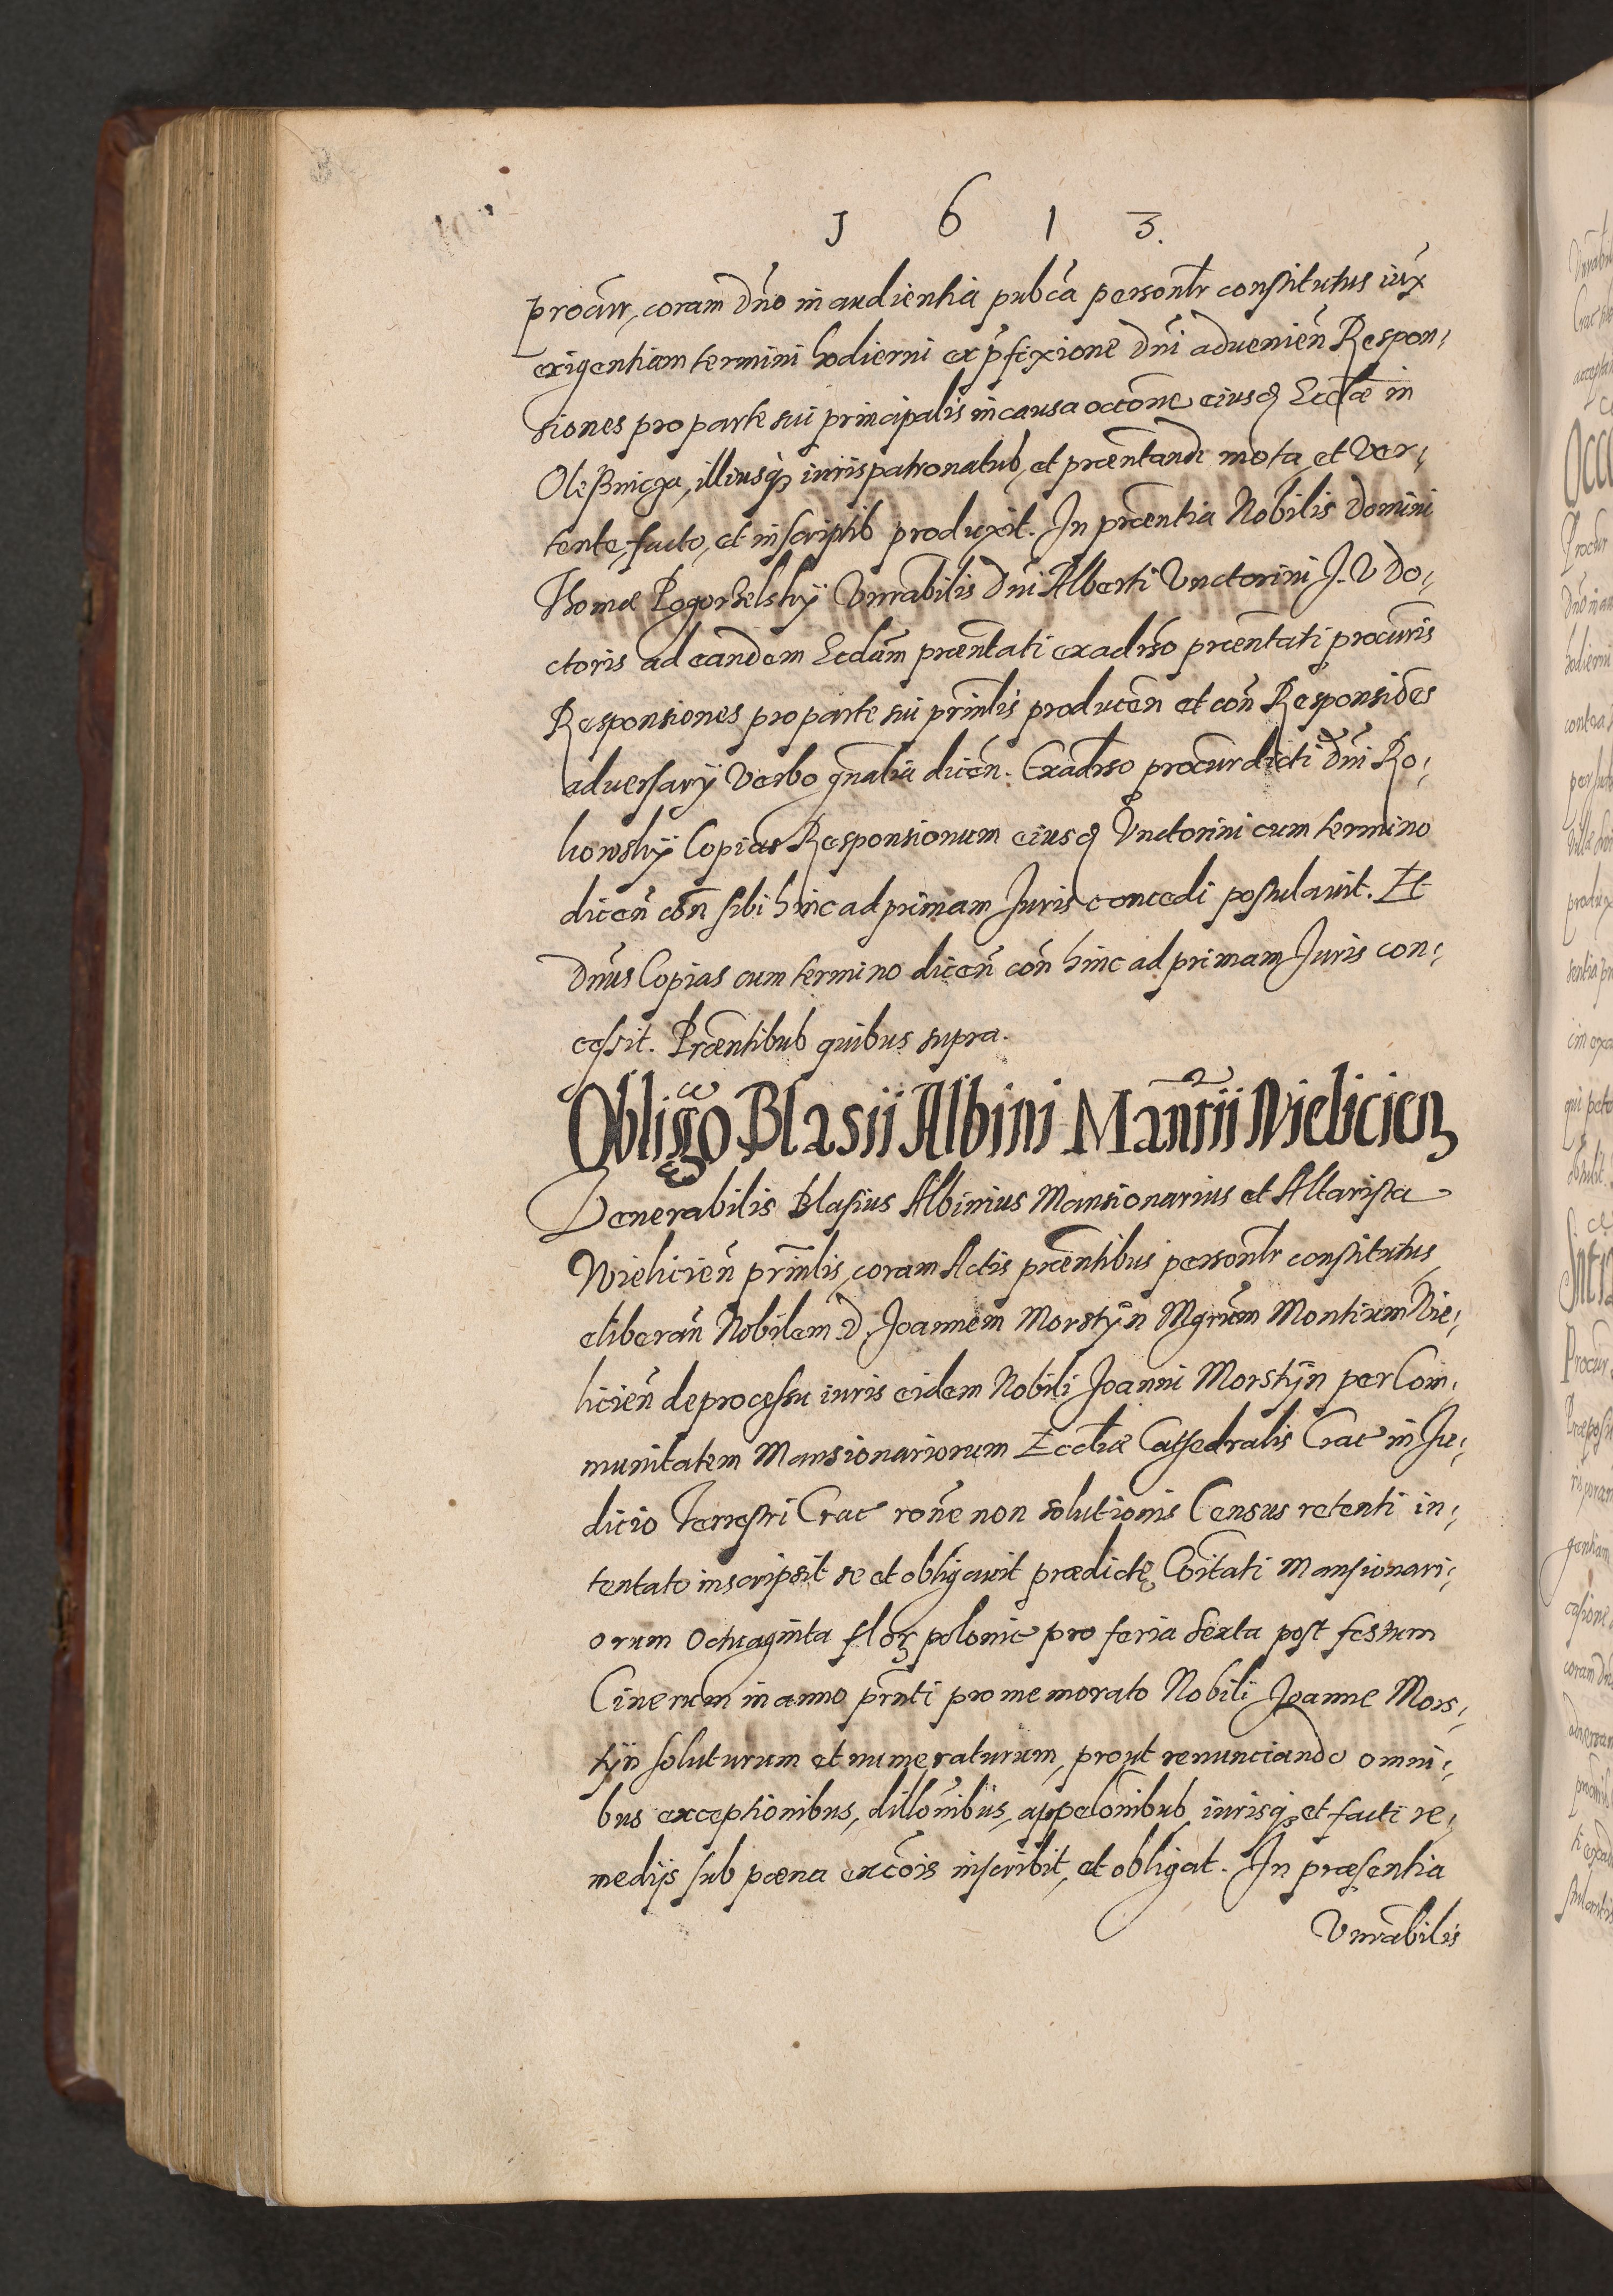 J 6 1 3.
procur, coram Dno in audientia pubca personlr constitutus iux
exigentiam termini hodierni ex pfixione Dni aduenien Respon-
siones pro parte sui principalis in causa occone eiusd Eccliae in
Olesznicza, illiusq iurispatronatus, et praentandi mota, et ver-
tente, facto, et in scriptis produxit. In praentia Nobilis Domini
Thomae Pogorzelskij Vnrabilis Dni Alberti Vnctorini J. V Do-
ctoris ad eandem Ecclam praentati ex adrso praentati procuris
Responsiones pro parte sui prinlis producen et con Responsides
adversarij verbo gnalia dicen. Ex adrso procur dicti Dni Ro-
kowskij Copias Responsionum eiusd Vnctorini cum termino
dicen con sibi hinc ad primam Juris concedi postulavit. Et
Dnus Copias cum termino dicen con hinc ad primam Juris con-
cessit. Praentibus quibus supra.
Obligao Blasii Albini Manrii Vieliciens
Venerabilis Blasius Albinius Mansionarius et Altarista
Vielicien prinlis, coram Actis praentibus personlr constitutus
eliberan Nobilem D. Joannem Morstyn Mgrum Montium Vie-
licien de processu iuris eidem Nobili Joanni Morstyn per Com-
munitatem Mansionariorum Eccliae Cathedralis Crac in Ju-
dicio Terrestri Crac rone non solutionis Census retenti in-
tentato inscripsit se et obligavit praedictę Coitati Mansionari-
orum Octuaginta flor polonic pro feria sexta post festum
Cinerum in anno prnti pro memorato Nobili Joanne Mors-
tyn soluturum et numeraturum, prout renunciando omni-
bus exceptionibus, dillonibus, appelonibus iurisq et facti re-
medijs sub poena excois inscribit, et obligat. In praesentia
Vnrabilis